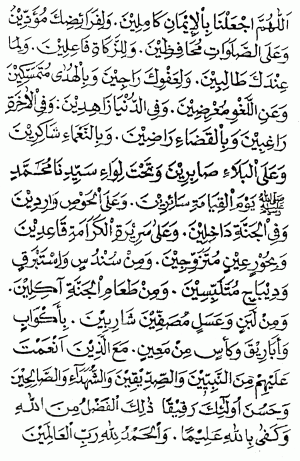 اَللّٰهُمَّ اجْعَلْنَا بِاْلإِيْمَانِ كَامِلِيْنَ . وَلِفَرَائِضِكَ مُؤَدِّيْنَ
وَعَلَى الصَّلَوَاتِ مُحَافِظِيْنَ . وَلِلزَّكَاةِ فَاعِلِيْنَ . وَلِمَا
عِنْدَكَ طَالِبِيْنَ . وَلِعَفْوِكَ رَاجِيْنَ وَبِالْهُدَى مُتَمَسِّكِيْنَ
وَعَنِ اللَّغْوِ مُعْرِضِيْنَ . وَفِى الدُّنْيَا زَاهِدِيْنَ . وَفِى اْلآخِرَةِ
رَاغِبِيْنَ وَبِالْقَضَاءِ رَاضِيْنَ . وَبِالنَّعْمَاءِ شَاكِرِيْنَ
وَعَلَى الْبَلَاءِ صَابِرِيْنَ وَتَحْتَ لِوَاءِ سَيِّدِنَا مُحَمَّدٍ
ﷺ يَوْمَ الْقِيَامَةِ سَائِرِيْنَ . وَعَلَى الْحَوْضِ وَارِدِيْنَ
وَفِى الْجَنَّةِ دَاخِلِيْنَ . وَعَلَى سَرِيْرَةِ الْكَرَامَةِ قَاعِدِيْنَ
وَبِحُوْرٍ عِيْنٍ مُتَزَوِّجِيْنَ . وَمِنْ سُنْدُسٍ وَاِسْتَبْرَقٍ
وَدِيْبَاجٍ مُتَلَبِّسِيْنَ . وَمِنْ طَعَامِ الْجَنَّةِ آكِلِيْنَ .
وَمِنْ لَبَنٍ وَعَسَلٍ مُصَفَّيْنَ شَارِبِيْنَ . بِأَكْوَابٍ
وَأَبَارِيْقَ وَكَأْسٍ مِنْ مَعِيْنٍ . مَعَ الَّذِيْنَ اَنْعَمْتَ
عَلَيْهِمْ مِنَ النَّبِيِّيْنَ وَالصِّدِّيْقِيْنَ وَالشُّهَدَاءِ وَالصَّالِحِيْنَ
وَحَسُنَ اُولٰئِكَ رَفِيْقًا ذٰلِكَ الْفَضْلُ مِنَ اللهِ
وَكَفَى بِاللهِ عَلِيْمًا . وَالْحَمْدُ لِلّٰهِ رَبِّ الْعَالَمِيْنَ